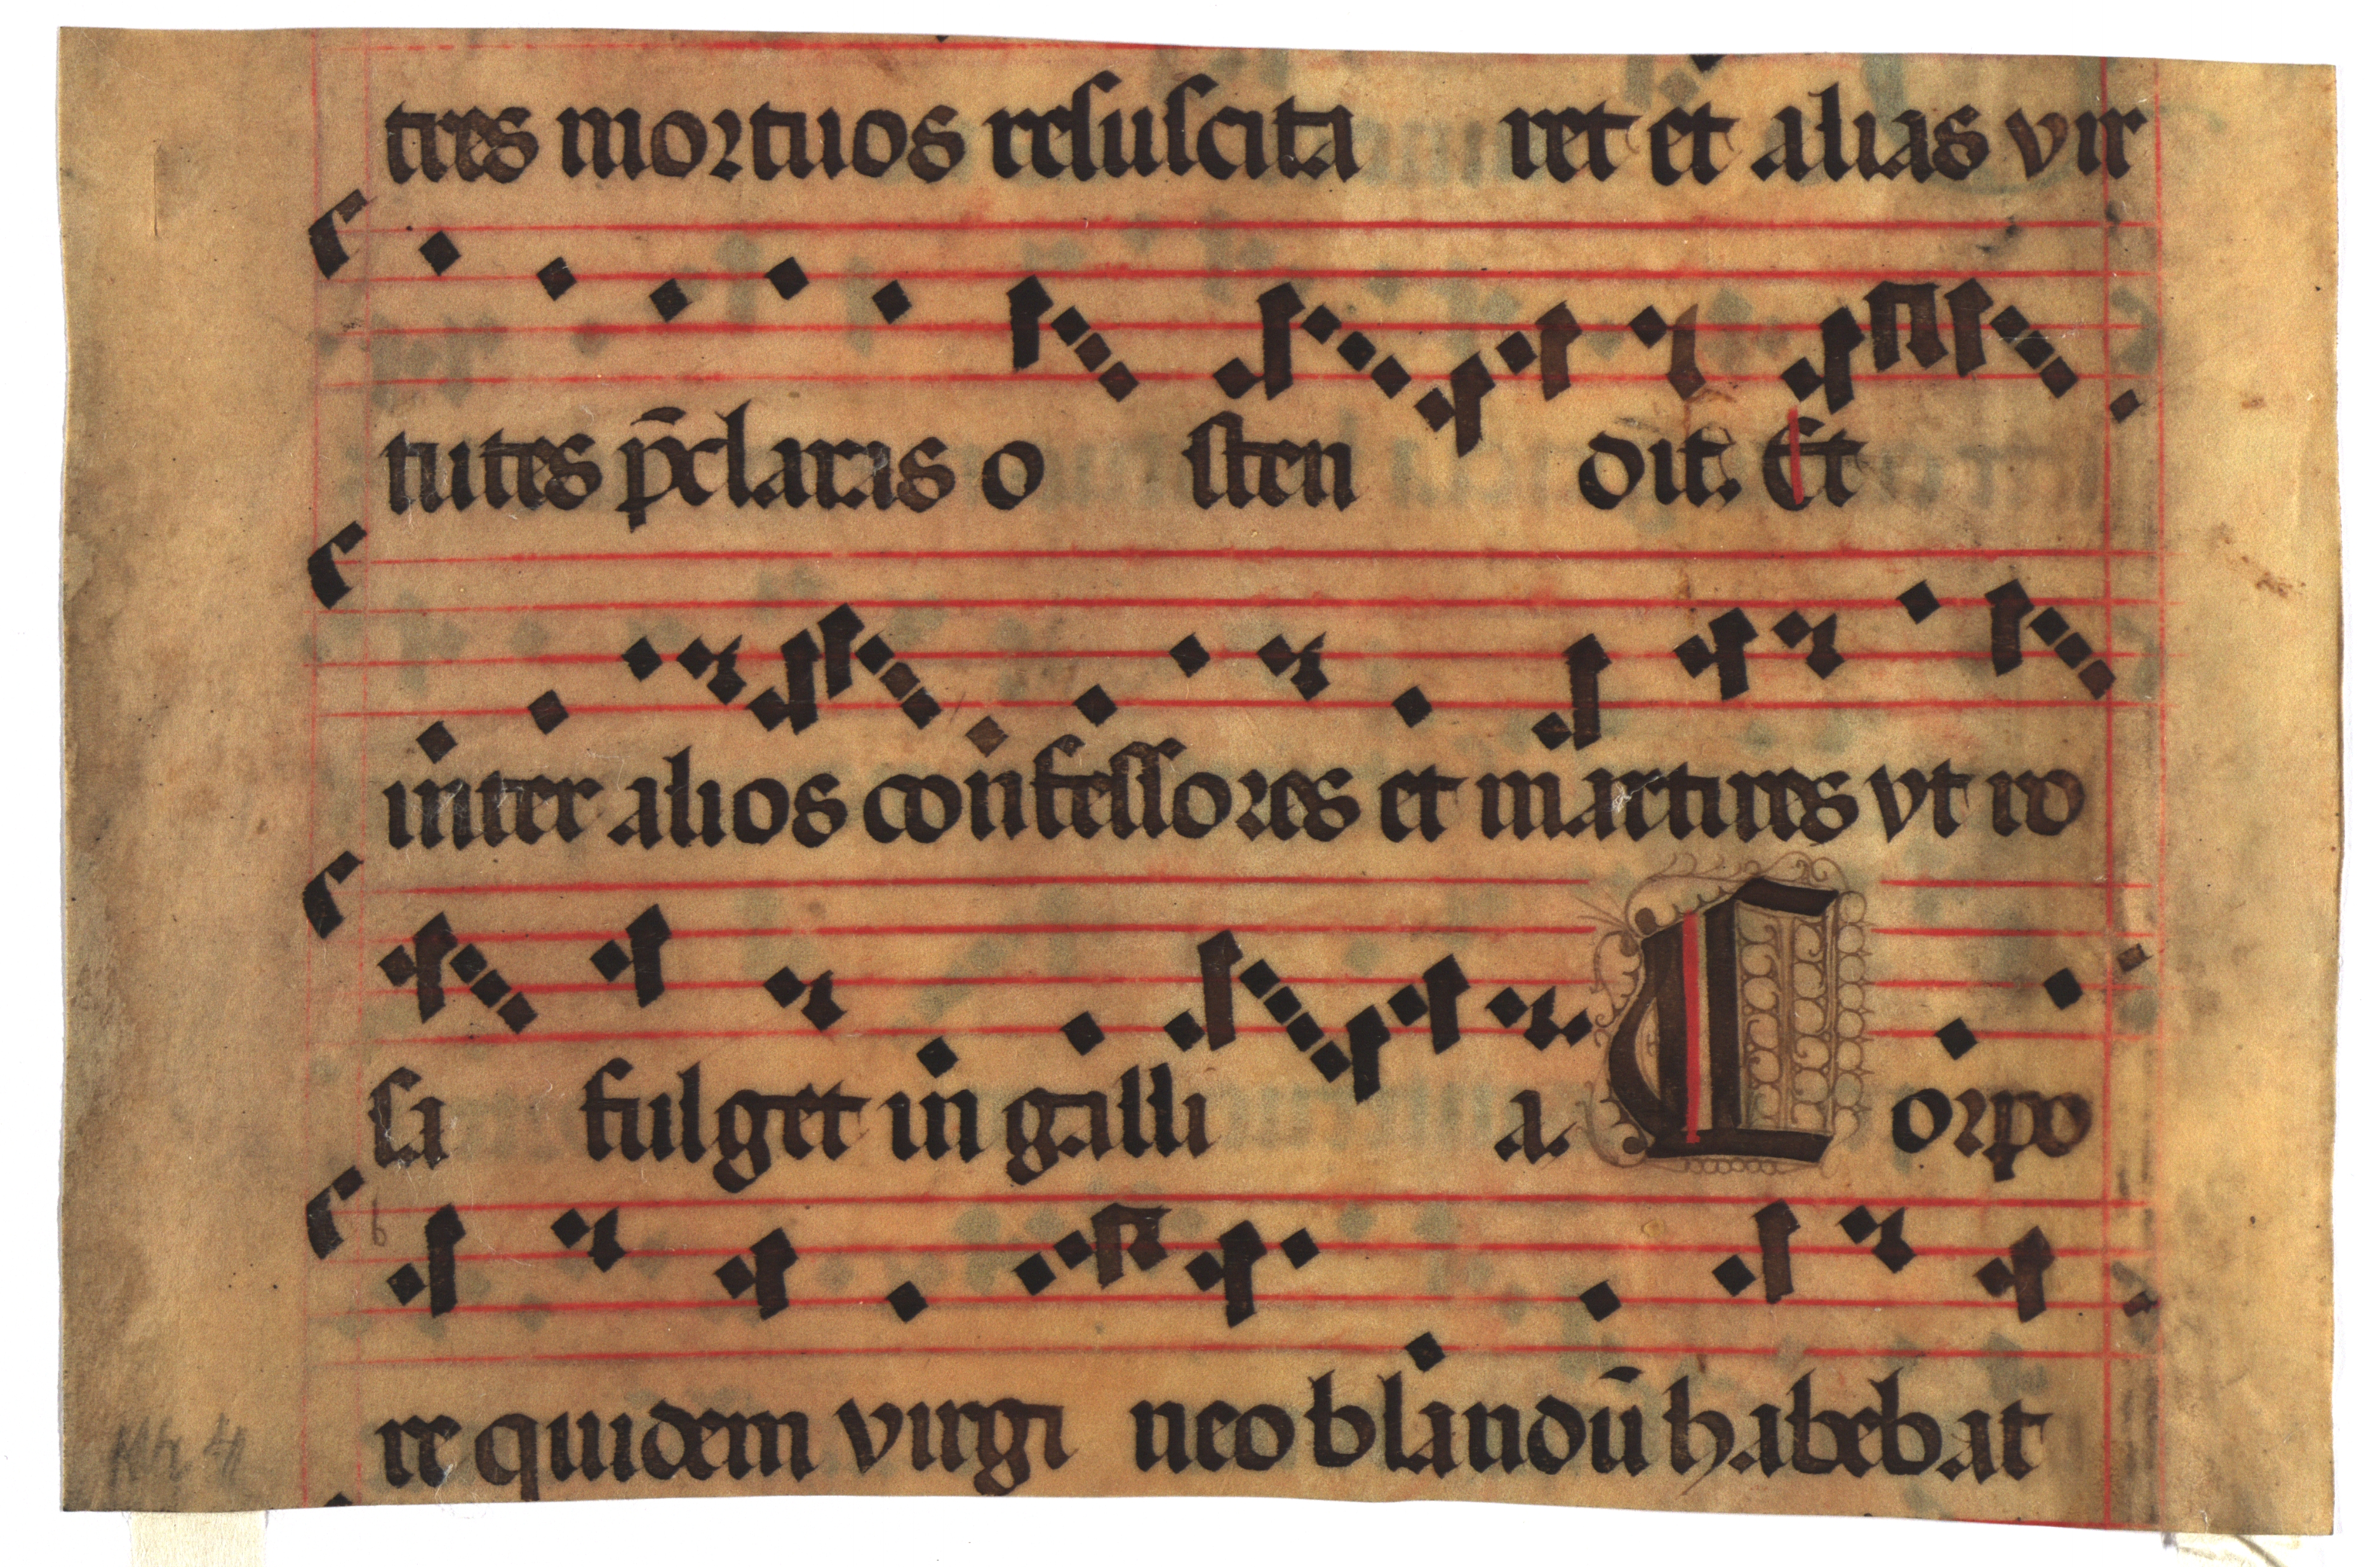 tres mortuos resuscita ret et alias vir
tutes p̄claras o sten dit. Et
inter alios confessores et martires vt ro
sa fulget in galli a. Corpo
re quidem virgi neo blandū habebat